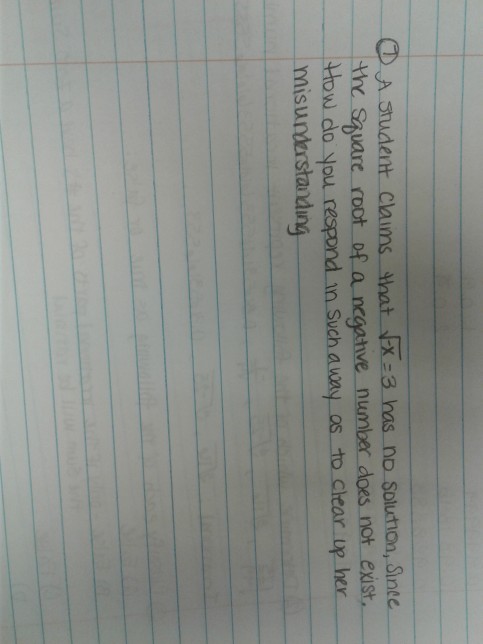 ⑦ A student claims that √-x = 3 has no solution, since
the square root of a negative number does not exist.
How do you respond in such a way as to clear up her
misunderstanding